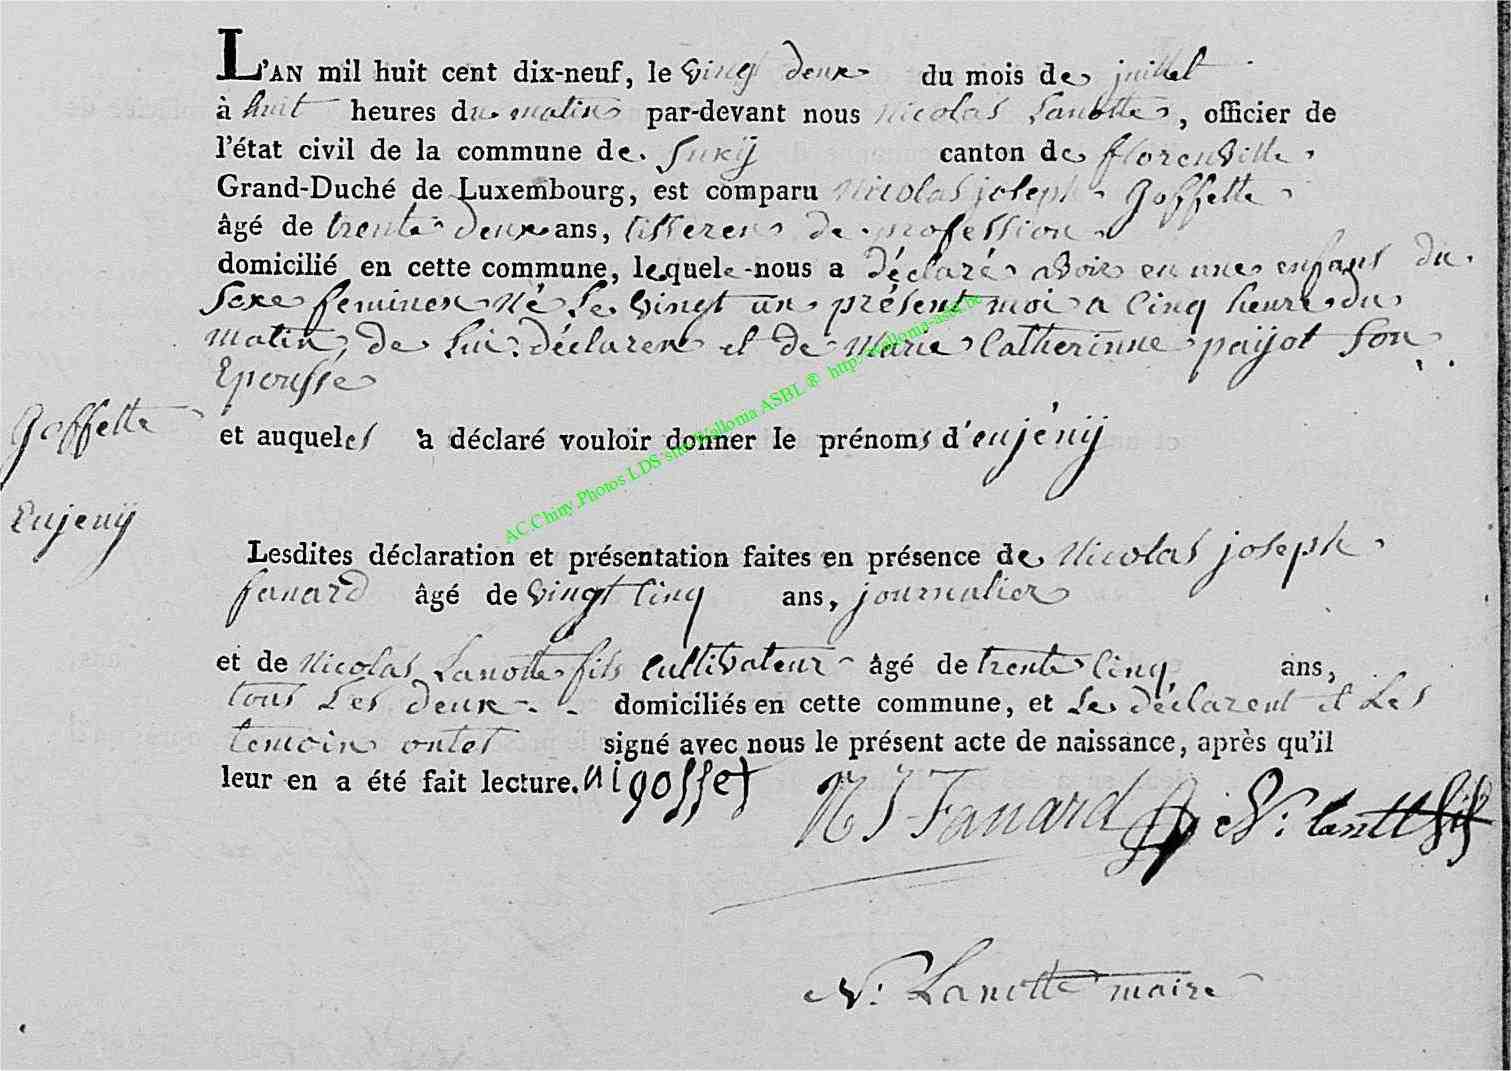 L'AN mil huit cent dix-neuf, le vingt deux du mois de juillet
à huit heures du matin par-devant nous Nicolas Lanotte, officier de
l'état civil de la commune de Suxÿ canton de florenville
Grand-Duché de Luxembourg, est comparu Nicolas joseph Goffette
âgé de trente deux ans, tisseren de profession
domicilié en cette commune, lequel nous a déclaré avoir eu une enfans du
sexe feminen Né Le vingt un présent moi a cinq heure du
matin de Lui déclaren et de Marie Catherinne payot son
Epousse
Goffette
et auqueles a déclaré vouloir donner le prénoms d'eujénÿ
Eujenÿ
Lesdites déclaration et présentation faites en présence de Nicolas joseph
fanard âgé de vingt cinq ans, journalier
et de Nicolas Lanotte fils cultivateur âgé de trente cinq ans,
tous Les deux domiciliés en cette commune, et Le déclarent et Les
temoin ontet signé avec nous le présent acte de naissance, après qu'il
leur en a été fait lecture. goffet
N J Fanard N: lanotte fils
N: Lanotte maire
AC.Chiny.Photos LDS site Wallonia ASBL ® http://wallonia-asbl.be